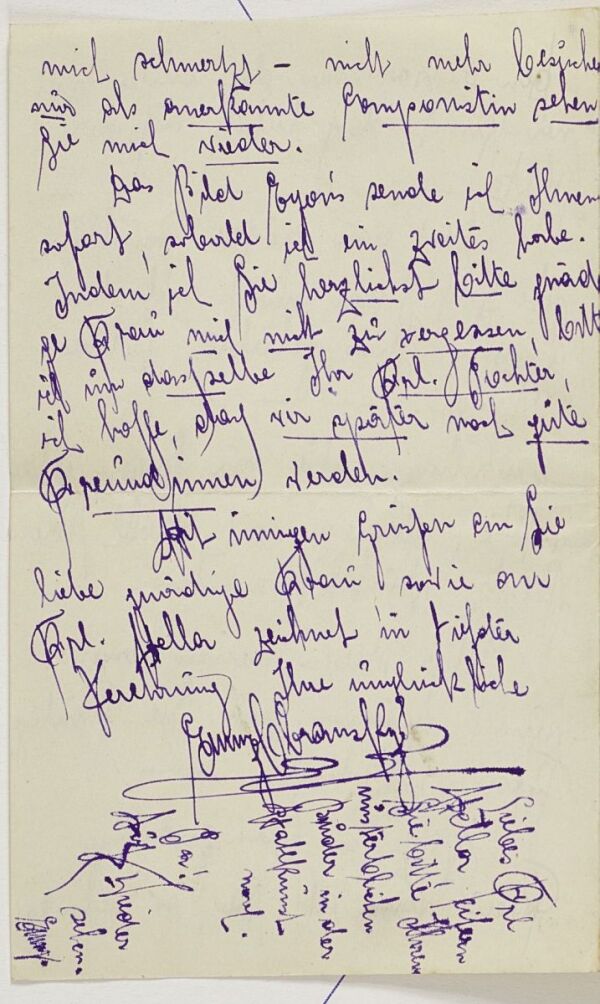 mich schmertzt – nicht mehr besuchen
nur als anerkannte Componistin sehen
Sie mich wieder.
Das Bild Egon's sende ich Ihnen
sofort, sobald ich ein zweites habe.
Indem ich Sie herzlichst bitte gnädi
ge Frau mich nicht zu vergessen, bitte
ich um dasselbe Ihr Frl. Tochter,
ich hoffe, dass wir später noch gute
Freundinnen werden.
Mit innigen Grüssen an Sie
liebe gnädige Frau sowie an
Frl. Stella zeichnet in tiefster
Verehrung Ihre unglückliche
Liebes Frl
Stella eifern
Sie bitte Ihrem
unsterblichen
Bruder in der
nach.
Auf
Wieder
sehen.